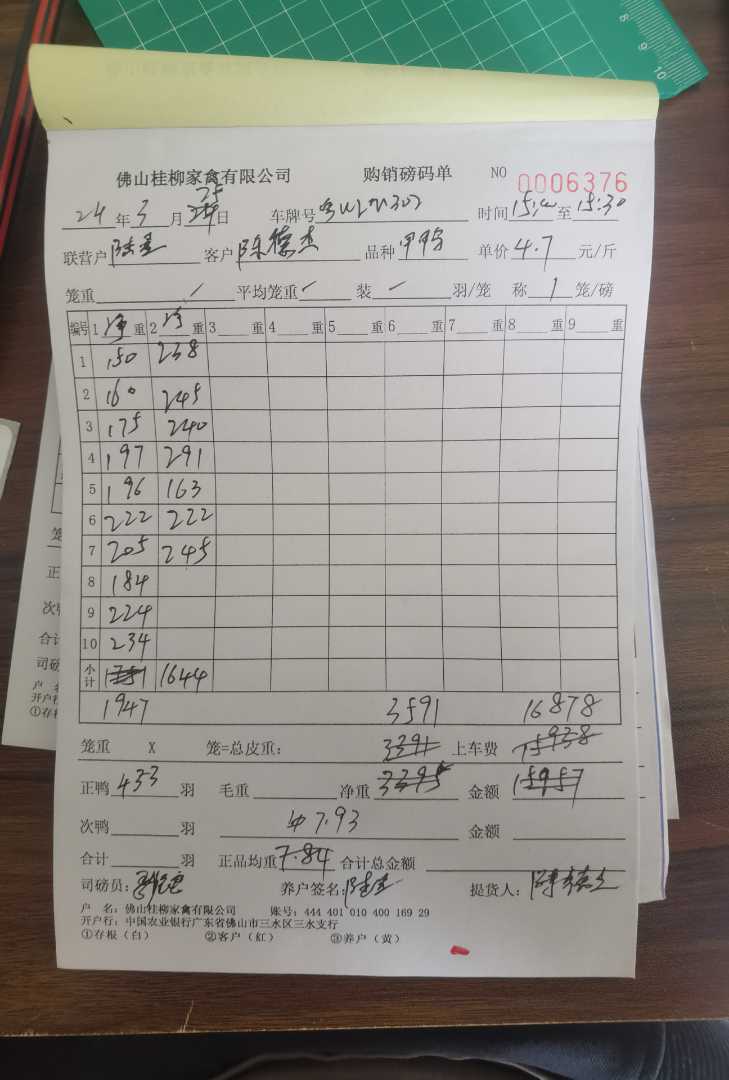 佛山桂柳家禽有限公司 购销磅码单 NO 0006376
24 年 3 月 25 日 车牌号 时间 至 15:30
联营户 客户 陈德杰 品种 单价 4.7 元/斤
笼重 / 平均笼重 装 羽/笼 称 1 笼/磅
编号 1 净 重 2 净 重 3 重 4 重 5 重 6 重 7 重 8 重 9 重
1 150 238
2 160 245
3 175 240
4 197 291
5 196 163
6 222 222
7 205 245
8 184
9 224
10 234
小计 1644
1947 3591 16878
笼重 X 笼=总皮重: 3391 上车费 15938
正鸭 433 羽 毛重 净重 3395 金额 15957
次鸭 羽 7.93 金额
合计 羽 正品均重 7.84 合计总金额
司磅员: 养户签名: 提货人:
户 名:佛山桂柳家禽有限公司 账号:444 401 010 400 169 29
开户行:中国农业银行广东省佛山市三水区三水支行
①存根(白) ②客户(红) ③养户(黄)